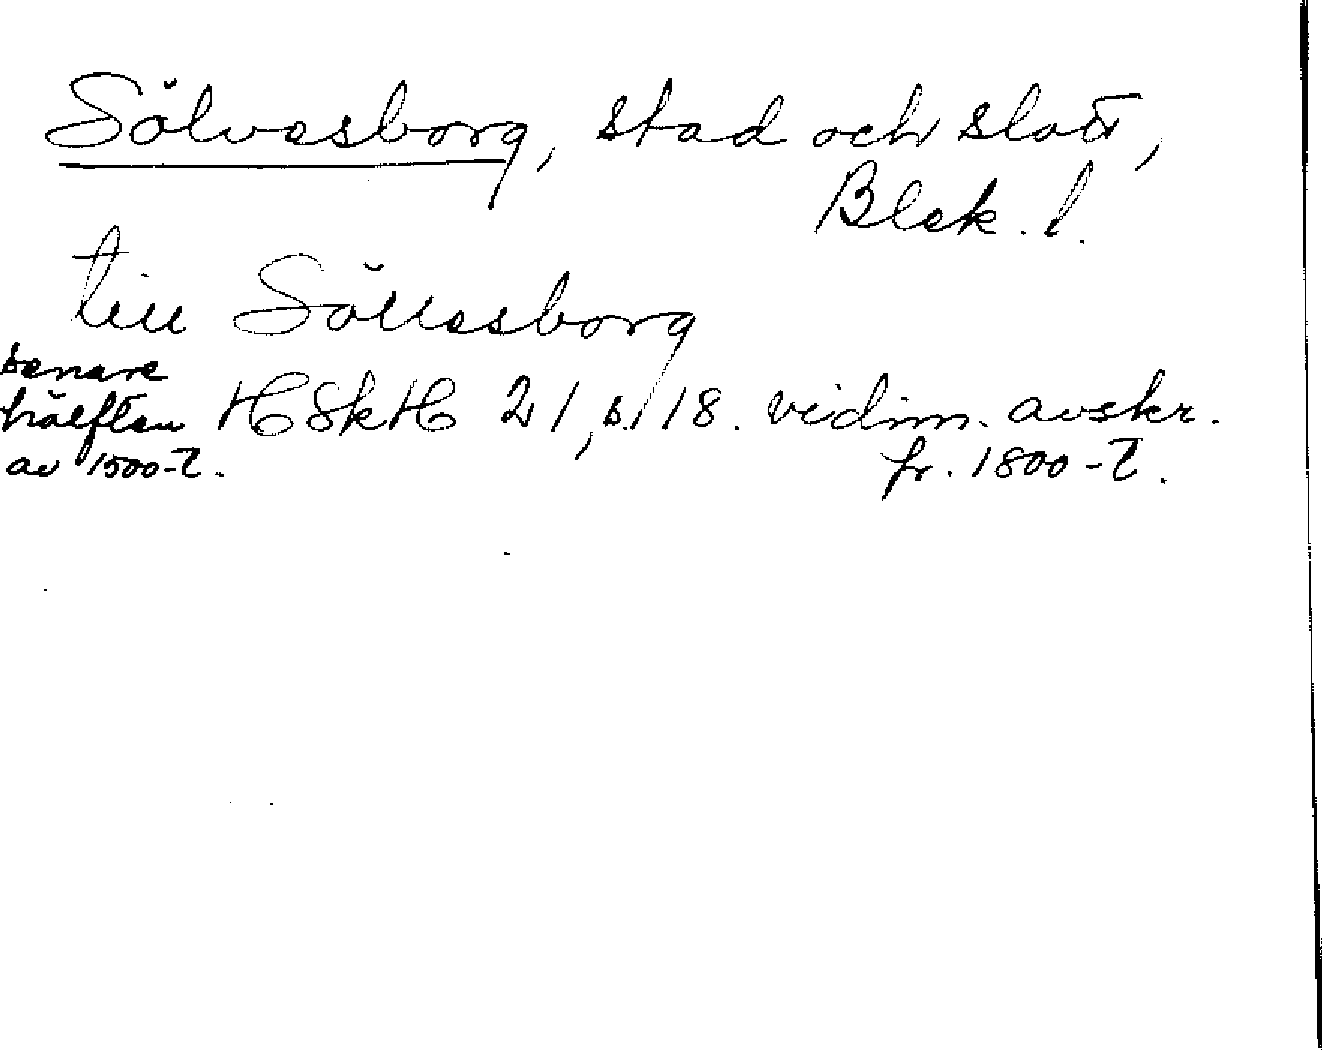 Sölvesborg, stad och slott,
Blek. l.
till Söllesborg
senare
hälften HSkH 21, s. 118. vidim. avskr.
av 1500-t. fr. 1800-t.